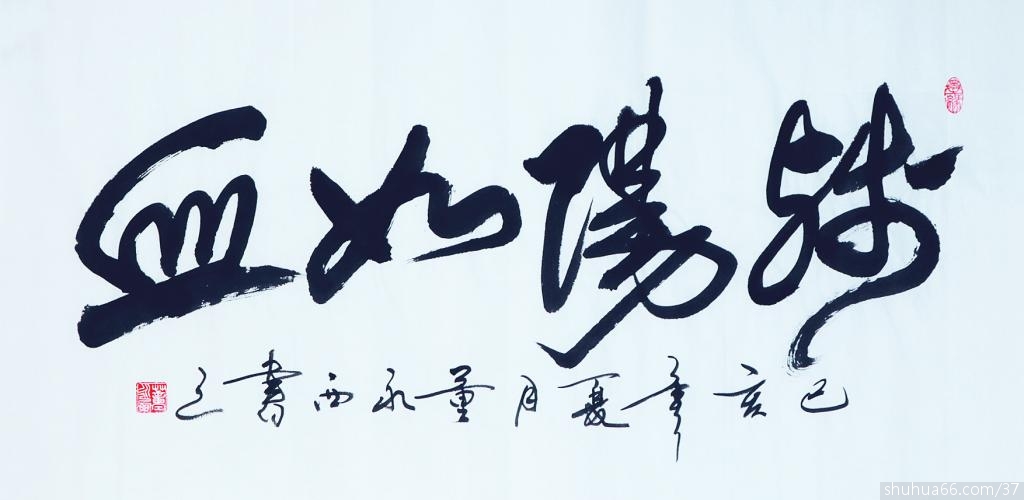 残陽如血
己亥年夏月董永西書之
shuhua66.com/37